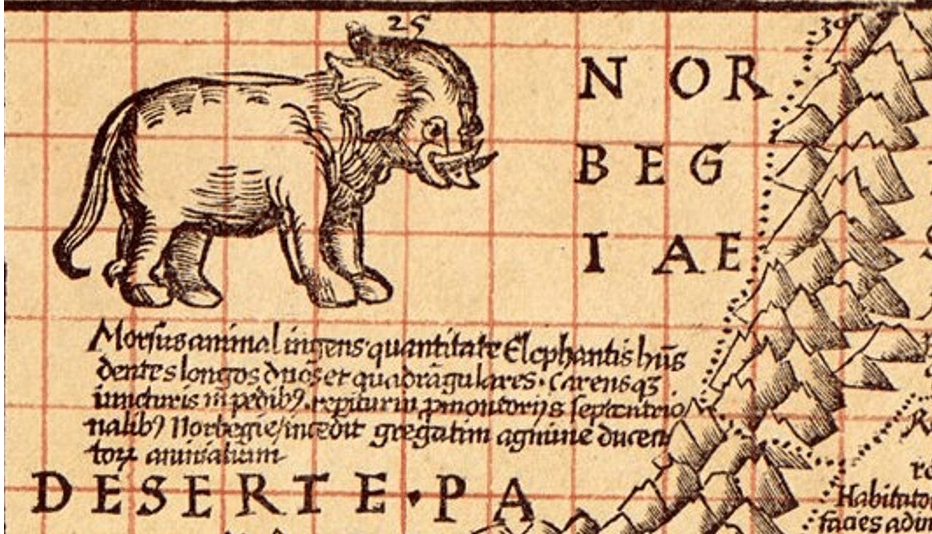 25
30
NOR
BEG
IAE
Morsus animal ingens quantitate Elephantis hñs
dentes longos duos et quadrãgulares · Carensqꝫ
iuncturis in pedibꝰ · repitur in ꝓmontorijs septentrio
nalibꝰ Norbegie/incedit gregatim agmine ducen
toꝝ animalium
DESERTE · PA
Habitato
facies adin